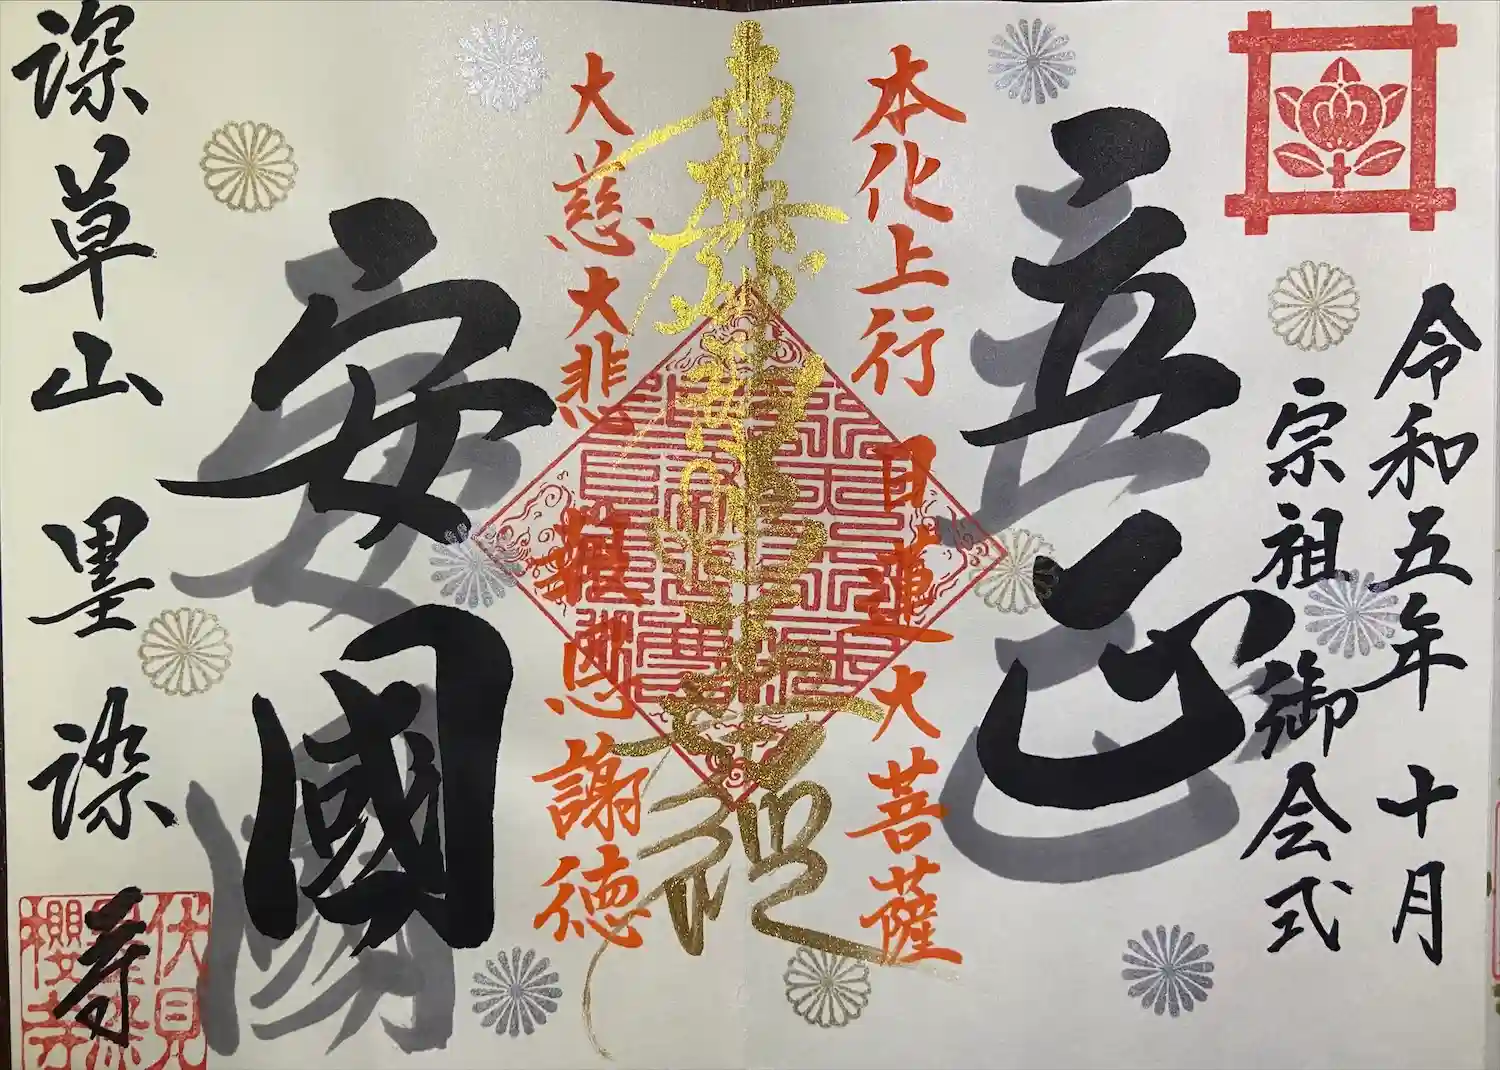 令和五年 十月
宗祖御会式
立正
本化上行 日蓮大菩薩
大慈大悲 報恩謝徳
安國
深草山 墨染寺
伏見
墨染
櫻寺